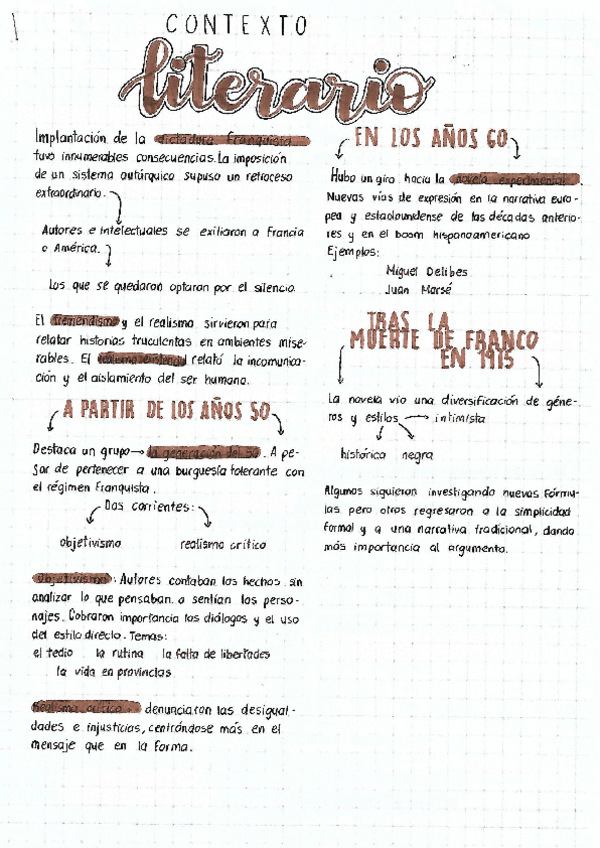 CONTEXTO
literario
Implantación de la dictadura franquista
tuvo innumerables consecuencias. La imposición
de un sistema autárquico supuso un retroceso
extraordinario.
Autores e intelectuales se exiliaron a Francia
o América.
Los que se quedaron optaron por el silencio.
El tremendismo y el realismo sirvieron para
relatar historias truculentas en ambientes mise-
rables. El realismo existencial relató la incomunica-
ción y el aislamiento del ser humano.
A PARTIR DE LOS AÑOS 50
Destaca un grupo → la generación del 50. A pe-
sar de pertenecer a una burguesía tolerante con
el régimen franquista.
Dos corrientes:
objetivismo realismo crítico
Objetivismo: Autores contaban los hechos sin
analizar lo que pensaban o sentían los perso-
najes. Cobraron importancia los diálogos y el uso
del estilo directo. Temas:
el tedio la rutina la falta de libertades
la vida en provincias
Realismo crítico: denunciaron las desigual-
dades e injusticias, centrándose más en el
mensaje que en la forma.
EN LOS AÑOS 60
Hubo un giro hacia la novela experimental.
Nuevas vías de expresión en la narrativa euro-
pea y estadounidense de las décadas anterio-
res y en el boom hispanoamericano
Ejemplos:
Miguel Delibes
Juan Marsé
TRAS LA
MUERTE DE FRANCO
EN 1975
La novela vio una diversificación de géne-
ros y estilos → intimista
histórica negra
Algunos siguieron investigando nuevas fórmu-
las pero otros regresaron a la simplicidad
formal y a una narrativa tradicional, dando
más importancia al argumento.